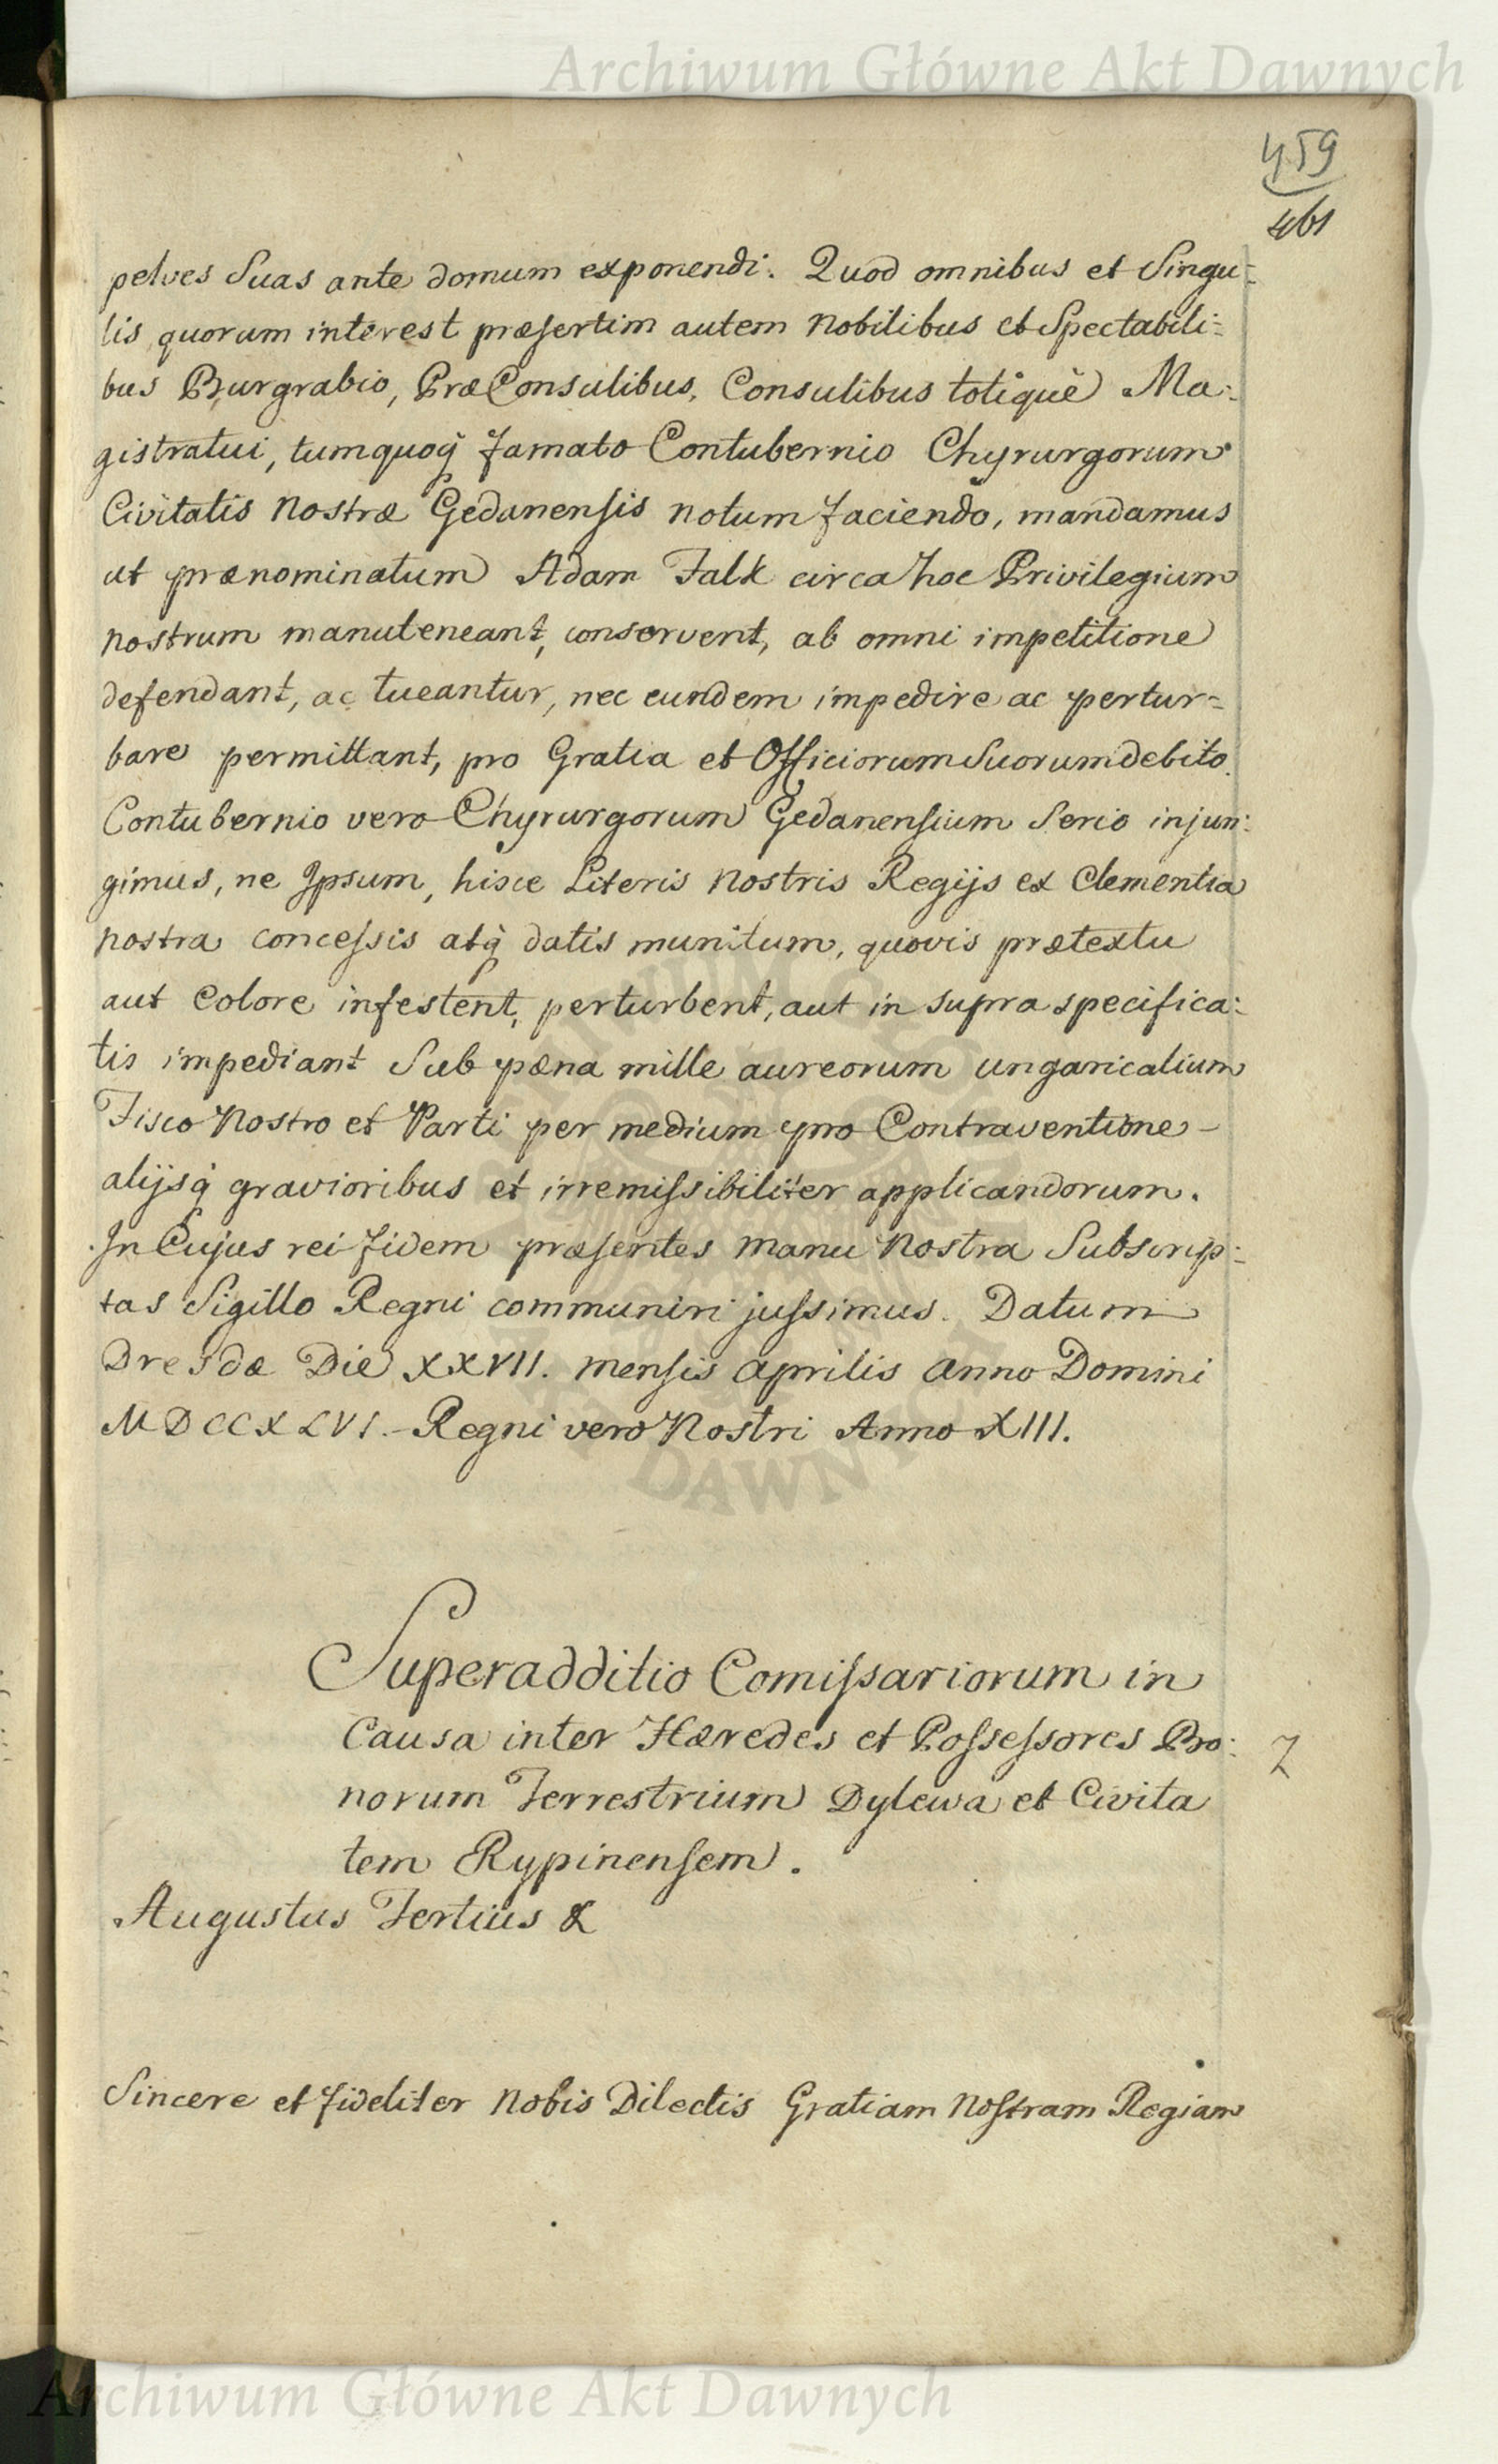 Archiwum Główne Akt Dawnych
459
461
pelves Suas ante domum exponendi. Quod omnibus et Singu=
lis quorum interest præsertim autem Nobilibus et Spectabili=
bus Burgrabio, PræConsulibus, Consulibus totiquè Ma:
gistratui, tumquoq̀ famato Contubernio Chyrurgorum
Civitatis Nostræ Gedanensis notum faciendo, mandamus
ut prænominatum Adam Falk circa hoc Privilegium
nostrum manuteneant, conservent, ab omni impetitione
defendant, ac tueantur, nec eundem impedire ac pertur=
bare permittant, pro Gratia et Officiorum Suorum debito.
Contubernio vero Chyrurgorum Gedanensium Serio injun:
gimus, ne Ipsum, hisce Literis Nostris Regijs ex Clementia
nostra concessis atq̀ datis munitum, quovis prætextu
aut Colore infestent, perturbent, aut in supra specifica:
tis impediant Sub pœna mille aureorum ungaricalium
Fisco Nostro et Parti per medium pro Contraventione
alijsq̀ gravioribus et irremissibiliter applicandorum.
In Cujus rei fidem præsentes manu Nostra Subscrip:
tas Sigillo Regni communiri jussimus. Datum
Dresdæ Die XXVII. mensis Aprilis Anno Domini
MDCCXLVI. Regni vero Nostri Anno XIII.
Superadditio Comissariorum in
Causa inter Hæredes et Possessores Bo:
norum Terrestrium Dylewa et Civita
tem Rypinensem.
Augustus Tertius &
Sincere et fideliter Nobis Dilectis Gratiam Nostram Regiam
Archiwum Główne Akt Dawnych